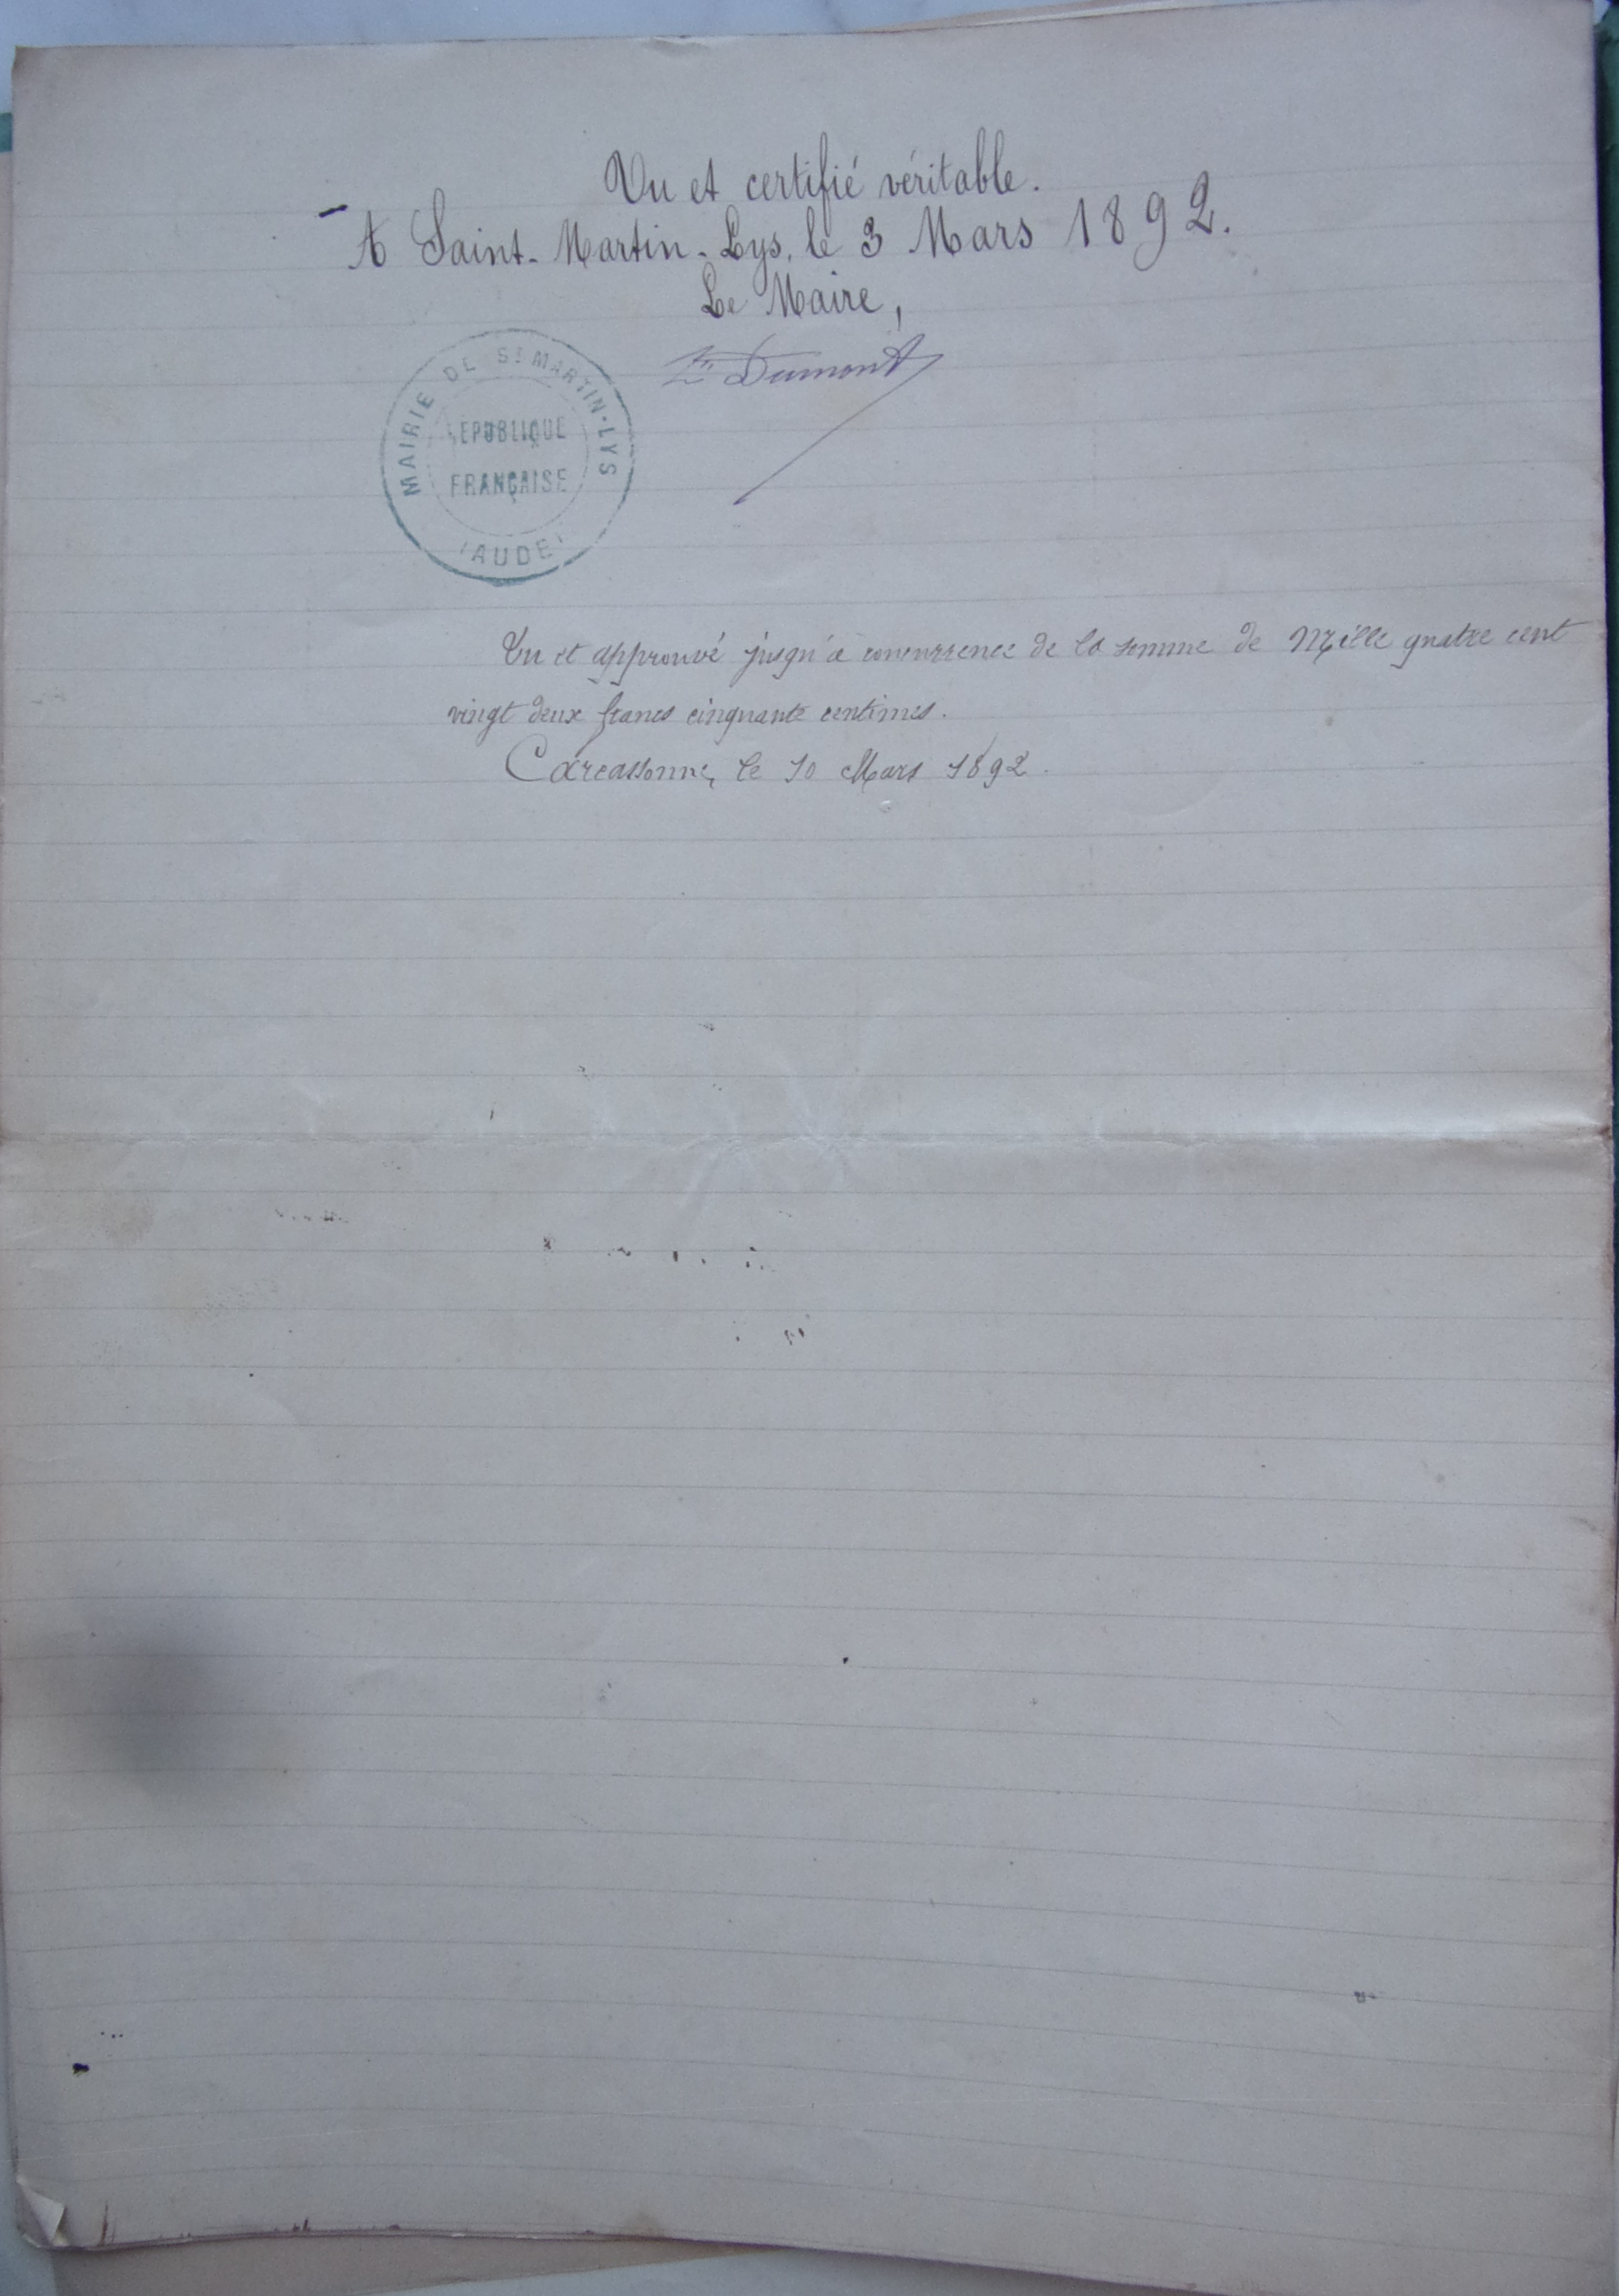 Vu et certifié véritable.
A Saint-Martin-Lys, le 3 Mars 1892.
Le Maire,
Dumont
MAIRIE DE ST MARTIN-LYS
REPUBLIQUE
FRANÇAISE
(AUDE)
Vu et approuvé jusqu'à concurrence de la somme de Mille quatre cent
vingt deux francs cinquante centimes.
Carcassonne, le 10 Mars 1892.